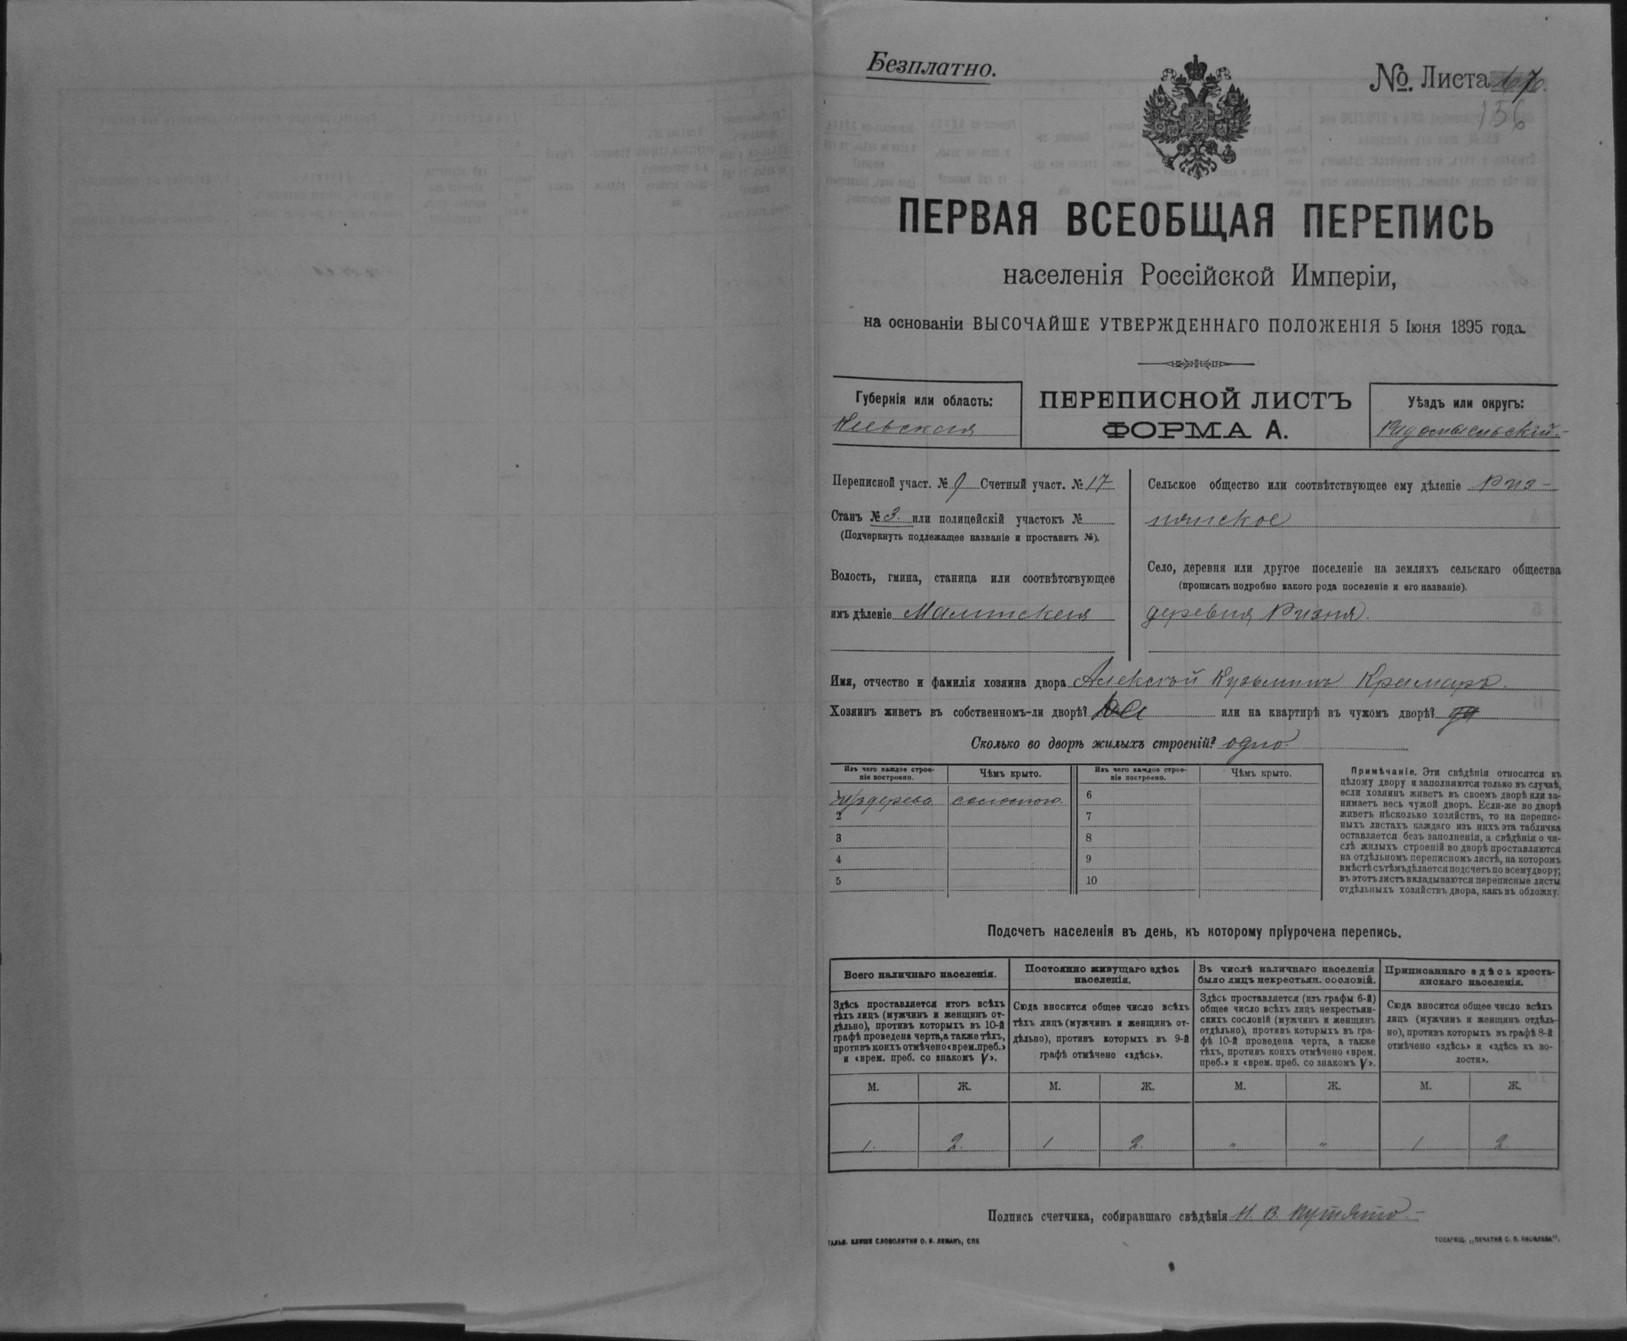 Безплатно.
№. Листа
156
ПЕРВАЯ ВСЕОБЩАЯ ПЕРЕПИСЬ
населенія Россійской Имперіи,
на основаніи ВЫСОЧАЙШЕ УТВЕРЖДЕННАГО ПОЛОЖЕНІЯ 5 Іюня 1895 года.
Губернія или область:
Кіевская
ПЕРЕПИСНОЙ ЛИСТЪ
ФОРМА А.
Уѣздъ или округъ:
Радомысльскій
Переписной участ. № 9 Счетный участ. № 17
Станъ № 3. или полицейскій участокъ №
(Подчеркнуть подлежащее названіе и проставить №).
Волость, гмина, станица или соотвѣтствующее
имъ дѣленіе Малинская
Сельское общество или соотвѣтствующее ему дѣленіе Риз-
нянское
Село, деревня или другое поселеніе на земляхъ сельскаго общества
(прописать подробно какого рода поселеніе и его названіе).
деревня Ризня.
Имя, отчество и фамилія хозяина двора Алексей Кузьминъ Крамаръ.
Хозяинъ живетъ въ собственномъ-ли дворѣ? или на квартирѣ въ чужомъ дворѣ?
Сколько во дворѣ жилыхъ строеній? одно.
Изъ чего каждое строе-
ніе построено.
Чѣмъ крыто.
Изъ чего каждое строе-
ніе построено.
Чѣмъ крыто.
1 Изъ дерева соломою.
2
3
4
5
6
7
8
9
10
Примѣчаніе. Эти свѣдѣнія относятся къ
цѣлому двору и заполняются только въ случаѣ,
если хозяинъ живетъ въ своемъ дворѣ или за-
нимаетъ весь чужой дворъ. Если-же во дворѣ
живетъ нѣсколько хозяйствъ, то на перепис-
ныхъ листахъ каждаго изъ нихъ эта табличка
оставляется безъ заполненія, а свѣдѣнія о чи-
слѣ жилыхъ строеній во дворѣ проставляются
на отдѣльномъ переписномъ листѣ, на которомъ
вмѣстѣ съ тѣмъ дѣлается подсчетъ по всему двору;
въ этотъ листъ вкладываются переписные листы
отдѣльныхъ хозяйствъ двора, какъ въ обложку.
Подсчетъ населенія въ день, къ которому пріурочена перепись.
Всего наличнаго населенія.
Здѣсь проставляется итогъ всѣхъ
тѣхъ лицъ (мужчинъ и женщинъ от-
дѣльно), противъ которыхъ въ 10-й
графѣ проведена черта, а также тѣхъ,
противъ коихъ отмѣчено «врем. преб.»
и «врем. преб. со знакомъ V».
Постоянно живущаго здѣсь
населенія.
Сюда вносится общее число всѣхъ
тѣхъ лицъ (мужчинъ и женщинъ от-
дѣльно), противъ которыхъ въ 9-й
графѣ отмѣчено «здѣсь».
Въ числѣ наличнаго населенія
было лицъ некрестьян. сословій.
Здѣсь проставляется (изъ графы 6-й)
общее число всѣхъ лицъ некрестьян-
скихъ сословій (мужчинъ и женщинъ
отдѣльно), противъ которыхъ въ гра-
фѣ 10-й проведена черта, а также
тѣхъ, противъ коихъ отмѣчено «врем.
преб.» и «врем. преб. со знакомъ V».
Приписаннаго здѣсь кресть-
янскаго населенія.
Сюда вносится общее число всѣхъ
лицъ (мужчинъ и женщинъ отдѣль-
но), противъ которыхъ въ графѣ 8-й
отмѣчено «здѣсь» и «здѣсь въ во-
лости».
М. Ж. М. Ж. М. Ж. М. Ж.
1. 2. 1 2. " " 1 2
Подпись счетчика, собиравшаго свѣдѣнія Н. В. Путято.
ГАЛЬВ. КЛИШЕ СЛОВОЛИТНИ О. И. ЛЕМАНЪ, СПБ
ТОВАРИЩ. „ПЕЧАТНЯ С. П. ЯКОВЛЕВА".